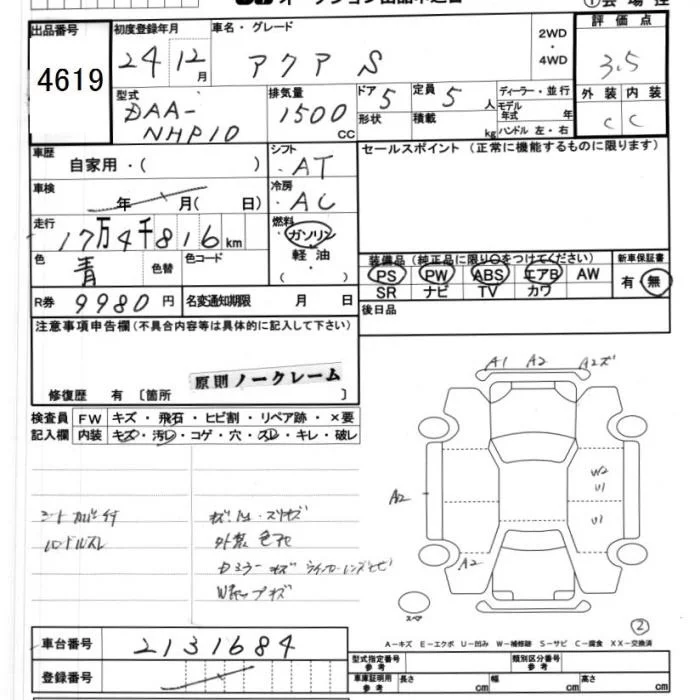 出品番号 初度登録年月 車名・グレード 2WD・4WD 評価点
4619 24 12月 アクア S 3.5
型式 DAA-NHP10 排気量 1500 CC ドア 5 定員 5 人 ディーラー・並行 外装 内装
形状 積載 kg モデル年式 年 ハンドル 左・右 C C
車歴 自家用・( ) シフト AT セールスポイント(正常に機能するものに限ります)
車検 年 月( 日) 冷房 AC
走行 17万4千816km 燃料 ガソリン 軽油 ( )
色 青 色替 色コード 装備品(純正品に限り○をつけてください) 新車保証書
PS PW ABS エアB AW 有・無
SR ナビ TV カワ
R券 9980円 名変通知期限 月 日 後日品
注意事項申告欄(不具合内容等は具体的に記入して下さい)
原則ノークレーム
修復歴 有 〔箇所 〕
検査員 FW キズ・飛石・ヒビ割・リペア跡・×要
記入欄 内装 キズ・汚レ・コゲ・穴・スレ・キレ・破レ
A1 A2 A2ズ
W2
U1
A2
U1
A2
シートカバー付
ハンドルスレ
外装色アセ
スペア
②
A-キズ E-エクボ U-凹み W-補修跡 S-サビ C-腐食 XX-交換済
車台番号 2131684 型式指定番号 参考 類別区分番号 参考
登録番号 車庫証明用 参考 長さ cm 幅 cm 高さ cm